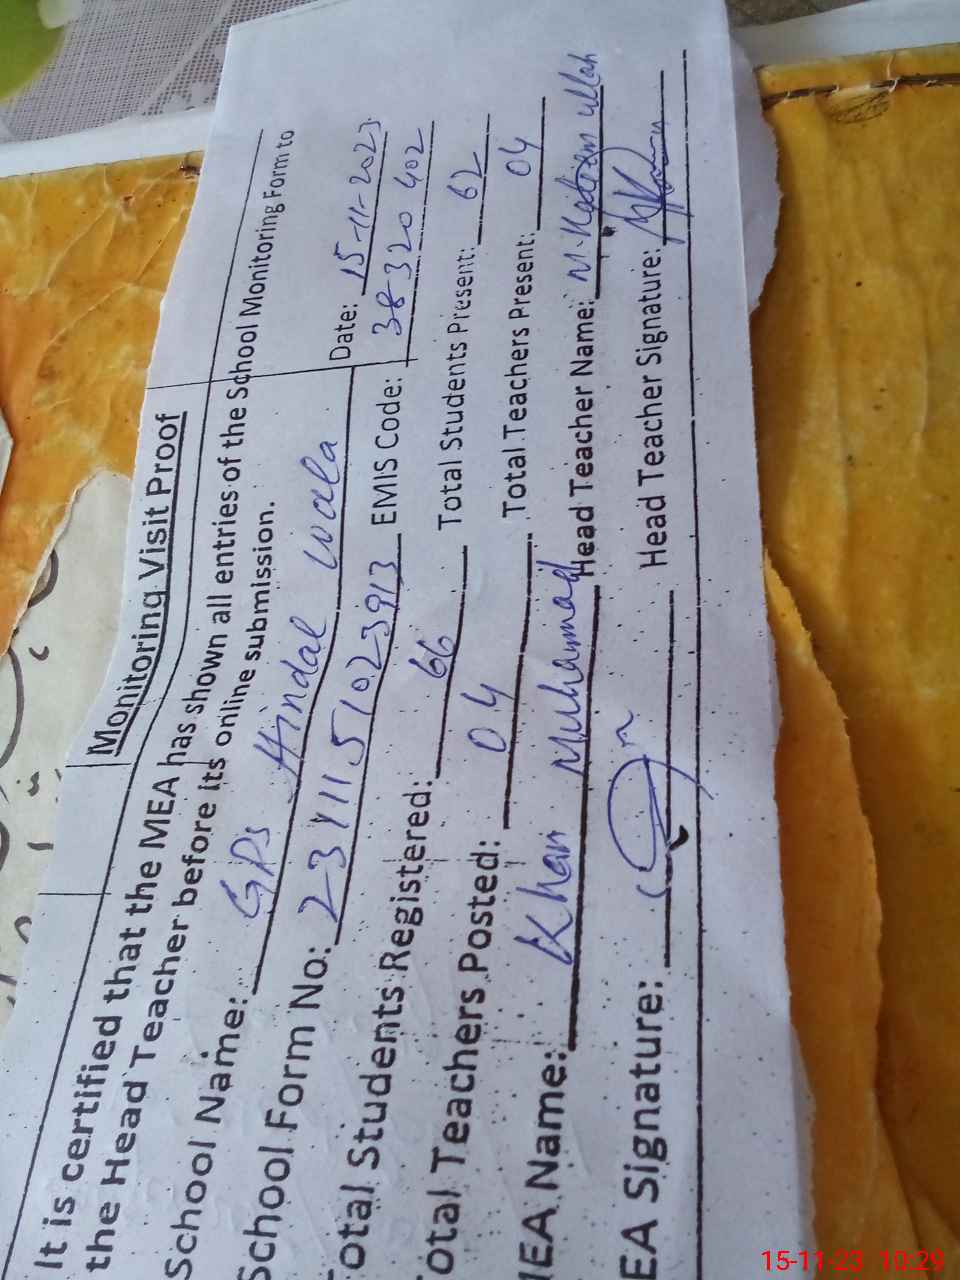 Monitoring Visit Proof
It is certified that the MEA has shown all entries of the School Monitoring Form to
the Head Teacher before its online submission.
School Name: GPS Hindal Wala Date: 15-11-2023
School Form No.: 2311151023913 EMIS Code: 38320402
Total Students Registered: 66 Total Students Present: 62
Total Teachers Posted: 04 Total Teachers Present: 04
MEA Name: Khan Muhammad Head Teacher Name: M. ullah
EA Signature: Head Teacher Signature:
15-11-23 10:29